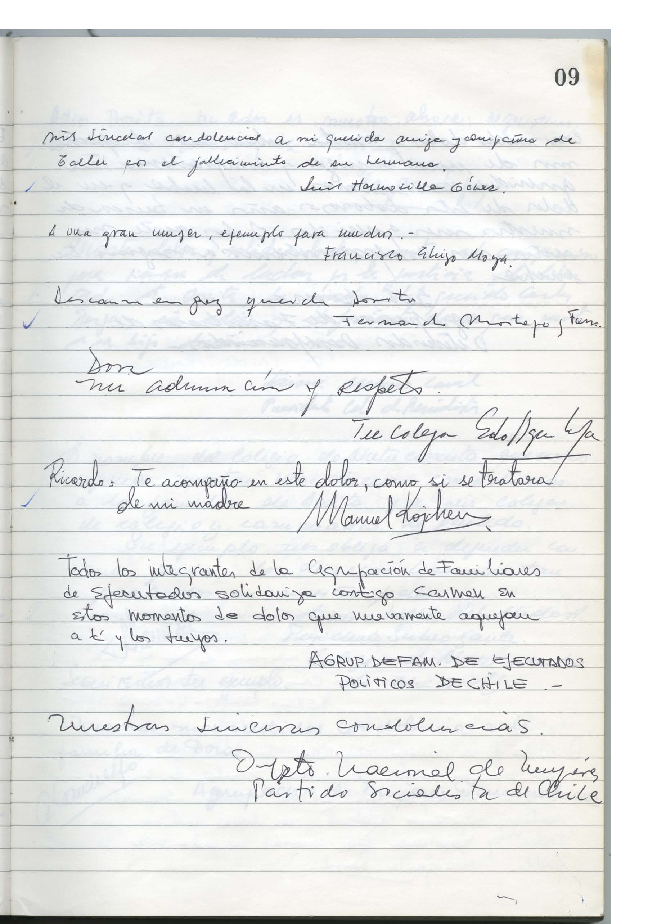 09
Mis sinceras condolencias a mi querida amiga y compañera de
Taller por el fallecimiento de su hermana.
Luis Hermosilla Gómez.
A una gran mujer, ejemplo para muchos.-
Francisco Moya.
Descansa en paz querida Dorita
Fernando Montejo y Fam.
Dora
mi admiración y respeto.
Tu colega
Ricardo: Te acompaño en este dolor, como si se tratara
de mi madre Manuel
Todos los integrantes de la Agrupación de Familiares
de Ejecutados solidariza contigo Carmen en
estos momentos de dolor que nuevamente aquejan
a tí y los tuyos.
AGRUP. DE FAM. DE EJECUTADOS
POLITICOS DE CHILE .-
Nuestras sinceras condolencias.
Dpto. Nacional de Mujeres
Partido Socialista de Chile